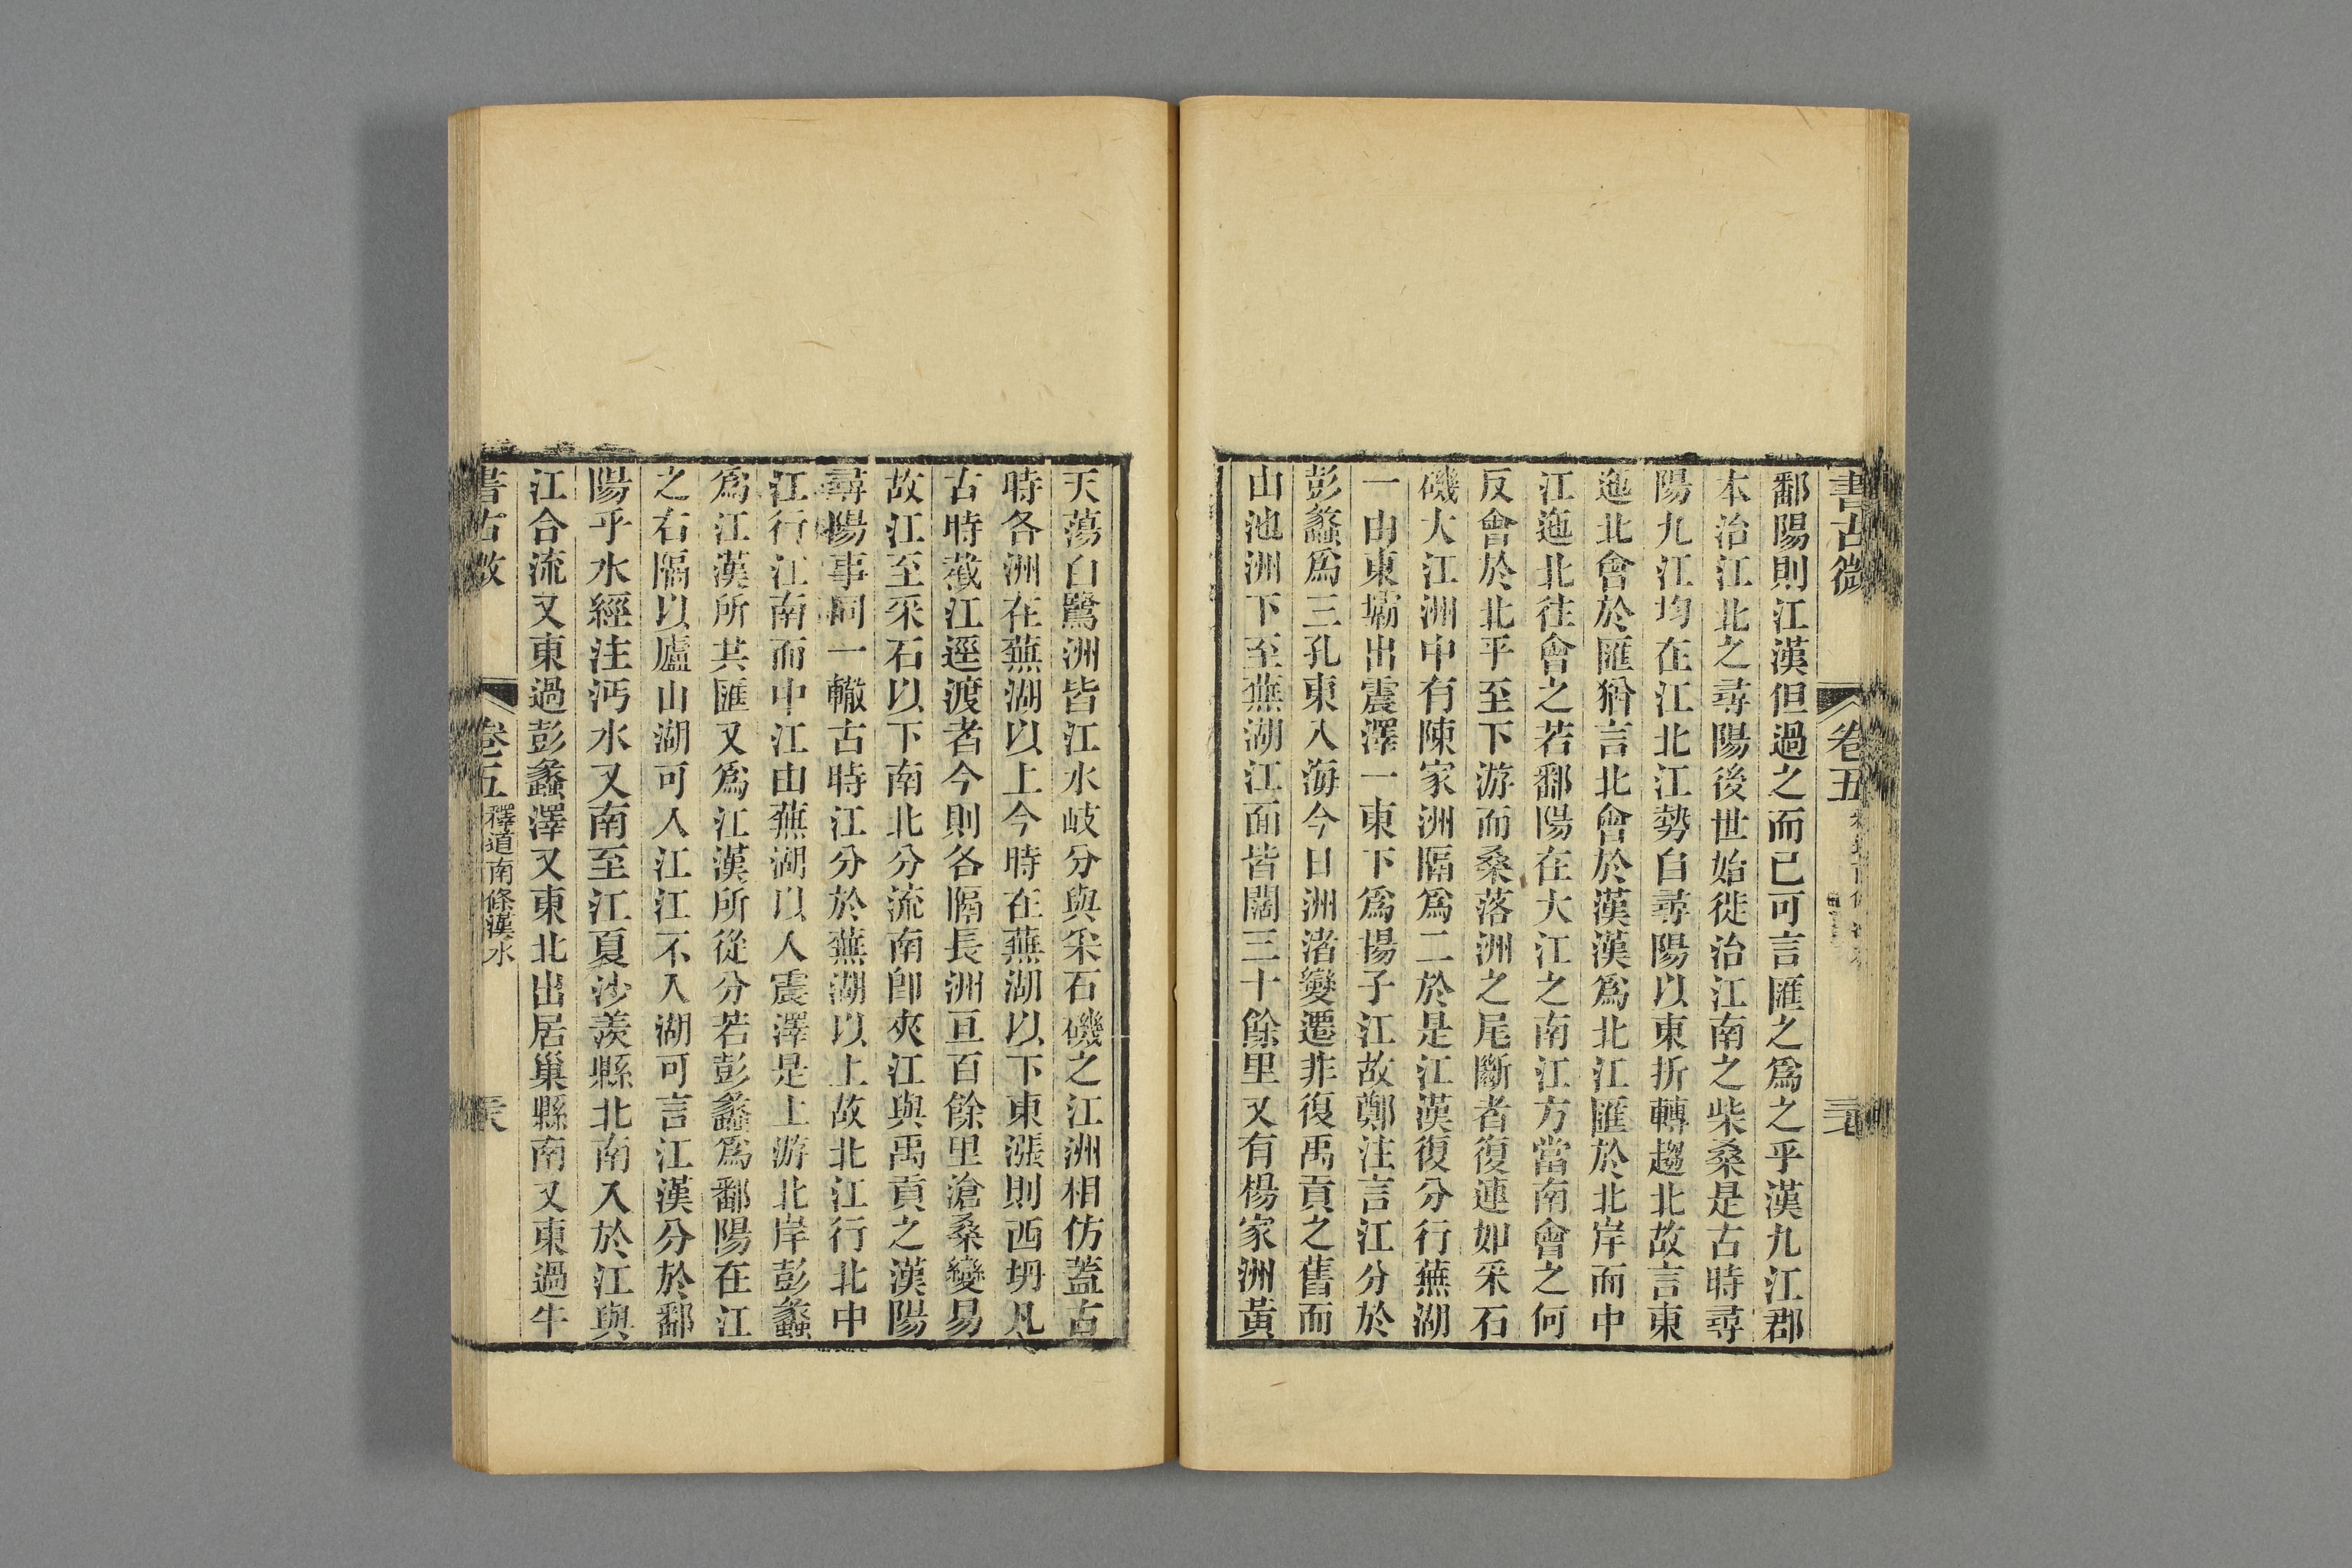 書古微 卷五
鄱陽則江漢但過之而已可言匯之爲之乎漢九江郡
本治江北之尋陽後世始徙治江南之柴桑是古時尋
陽九江均在江北江勢自尋陽以東折轉趨北故言東
迤北會於匯猶言北會於漢漢爲北江匯於北岸而中
江迤北往會之若鄱陽在大江之南江方當南會之何
反會於北乎至下游而桑落洲之尾斷者復連如采石
磯大江洲中有陳家洲隔爲二於是江漢復分行蕪湖
一由東壩出震澤一東下爲揚子江故鄭注言江分於
彭蠡爲三孔東入海今日洲渚變遷非復禹貢之舊而
山池洲下至蕪湖江面皆闊三十餘里又有楊家洲黃
天蕩白鷺洲皆江水岐分與采石磯之江洲相仿蓋古
時各洲在蕪湖以上今時在蕪湖以下東漲則西坍凡
古時截江逕渡者今則各隔長洲亘百餘里滄桑變易
故江至采石以下南北分流南卽夾江與禹貢之漢陽
尋陽事同一轍古時江分於蕪湖以上故北江行北中
江行江南而中江由蕪湖以入震澤是上游北岸彭蠡
爲江漢所共匯又爲江漢所從分若彭蠡爲鄱陽在江
之右隔以廬山湖可入江江不入湖可言江漢分於鄱
陽乎水經注沔水又南至江夏沙羨縣北南入於江與
江合流又東過彭蠡澤又東北出居巢縣南又東過牛
書古微 卷五 釋道南條漢水